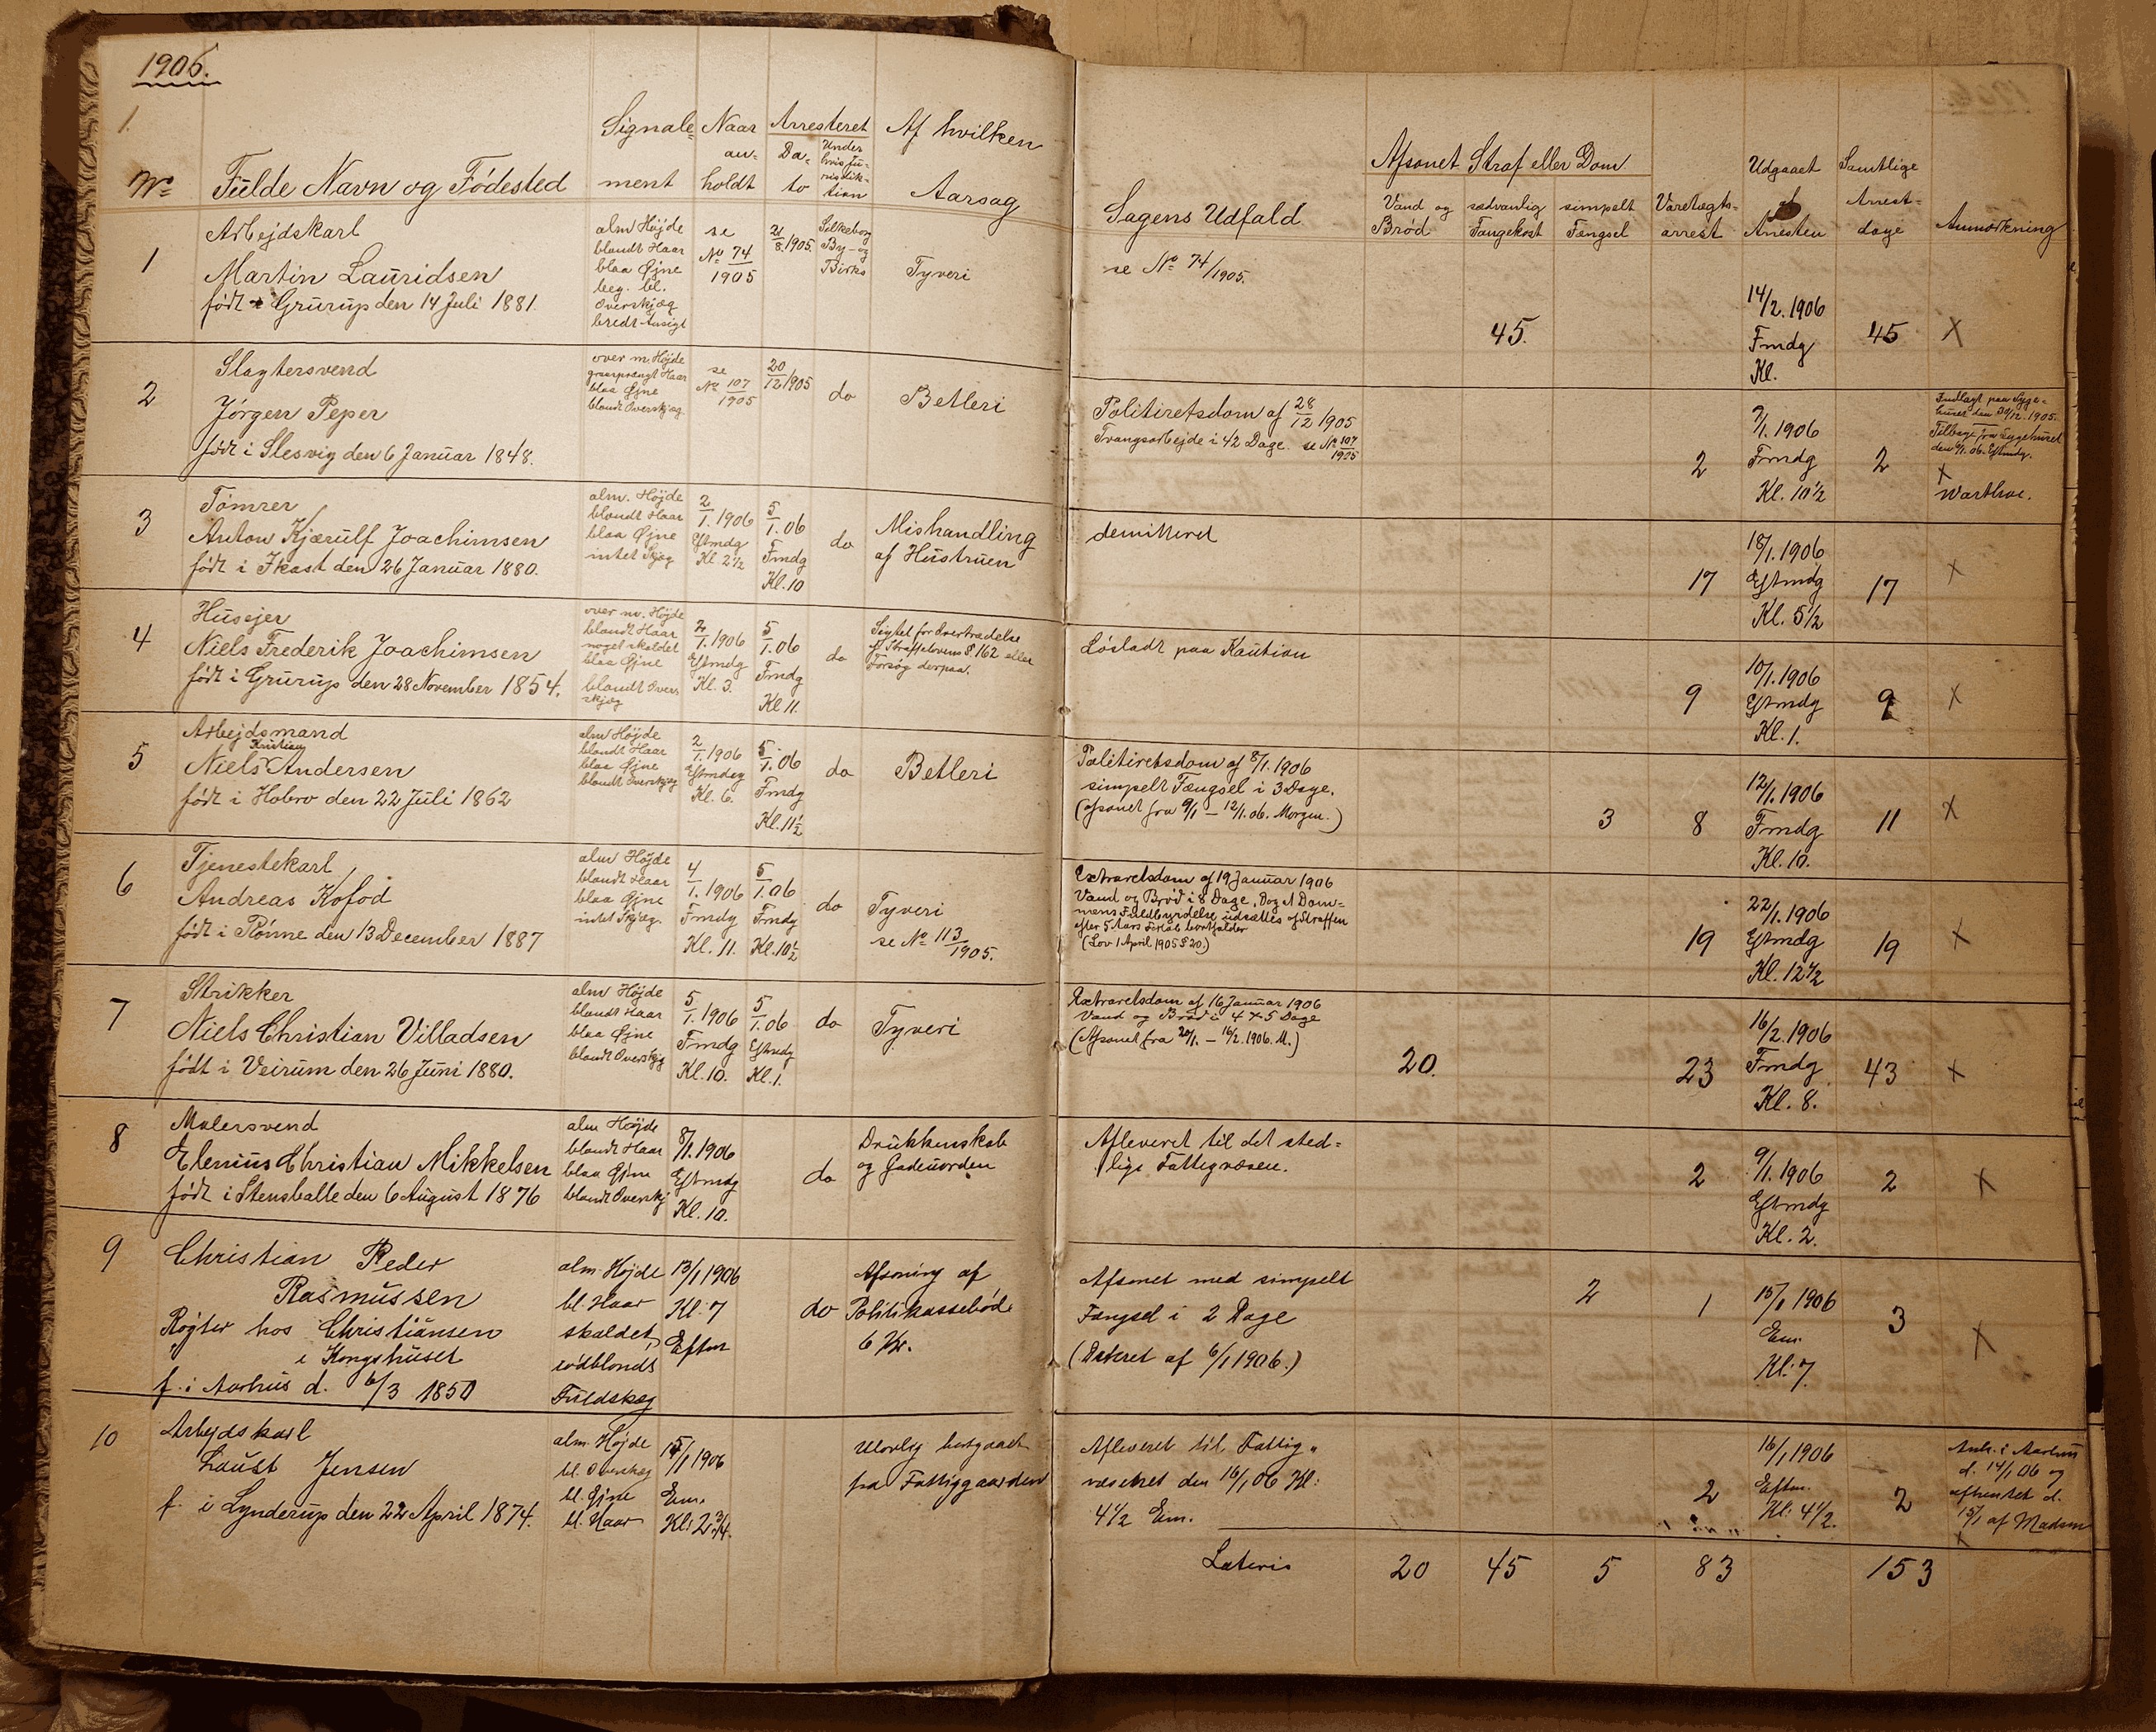 1906.
1.
Nº
Fulde Navn og Födested
Signale-
ment
Naar
an-
holdt
Arresteret
Da-
to
Under
hvis Ju-
risdik-
tion
Af hvilken
Aarsag
Sagens Udfald.
Afsonet Straf eller Dom
Vand og
Bröd
sædvanlig
Fangekost
simpelt
Fængsel
Varetægts-
arrest
Udgaaet
Arresten
Samtlige
Arrest-
dage
Anmærkning
1
Arbejdskarl
Martin Lauridsen
födt i Grurup den 14 Juli 1881.
alm Höjde
blondt Haar
blaa Øjne
beg. bl.
Overskjæg
bredt Ansigt
se
Nº 74
1905
21/8 1905.
Silkeborg
By- og
Birks
Tyveri
se Nº 74/1905.
45.
14/2. 1906
Fmdg
Kl.
45
X
2
Slagtersvend
Jörgen Peper
födt i Slesvig den 6 Januar 1848.
over m. Höjde
graasprængt Haar
blaa Øjne
blondt Overskjæg
se
Nº 107
1905
20/12 1905
do
Betleri
Politiretsdom af 28/12 1905
Tvangsarbejde i 42 Dage. se Nº 107/1905
2
2/1. 1906
Fmdg
Kl. 10½
2
Indlagt paa Syge-
huset den 30/12. 1905.
Tilbage fra Sygehuset
den 9/1. 06. Eftmdg.
X
3
Tömrer
Anton Kjærulf Joachimsen
födt i Ikast den 26 Januar 1880.
alm. Höjde
blondt Haar
blaa Øjne
intet Skjæg
2/1. 1906
Eftmdg
Kl 2½
5/1. 06
Fmdg
Kl. 10
do
Mishandling
af Hustruen
demitteret
17
18/1. 1906
Eftmdg
Kl. 5½
17
X
4
Husejer
Niels Frederik Joachimsen
födt i Grurup den 28 November 1854.
over m. Höjde
blondt Haar
noget skaldet
blaa Øjne
blondt Over-
skjæg
2/1. 1906
Eftmdg
Kl. 3.
5/1. 06
Fmdg
Kl 11.
do
Sigtet for Overtrædelse
af Straffelovens § 162 eller
Forsög derpaa.
Lösladt paa Kaution
9
10/1. 1906
Eftmdg
Kl. 1.
9
X
5
Arbejdsmand
Kristian
Niels Andersen
födt i Hobro den 22 Juli 1862
alm Höjde
blondt Haar
blaa Øjne
blondt Overskjæg
2/1. 1906
Eftmdg
Kl. 6.
5/1. 06
Fmdg
Kl. 11½
do
Betleri
Politiretsdom af 8/1. 1906
simpelt Fængsel i 3 Dage.
(afsonet fra 9/1 – 12/1. 06. Morgen.)
3
8
12/1. 1906
Fmdg
Kl. 10.
11
X
6
Tjenestekarl
Andreas Kofod
födt i Rönne den 13 December 1887
alm Höjde
blondt Haar
blaa Øjne
intet Skjæg.
4/1. 1906
Fmdg
Kl. 11.
5/1. 06
Fmdg
Kl. 10½
do
Tyveri
se Nº 113/1905.
Extraretsdom af 19 Januar 1906
Vand og Bröd i 8 Dage, Dog at Dom-
mens Fuldbyrdelse udsættes og Straffen
efter 5 Aars Forløb bortfalder
(Lov 1 April 1905 § 20.)
19
22/1. 1906
Eftmdg
Kl. 12½
19
X
7
Strikker
Niels Christian Villadsen
födt i Veirum den 26 Juni 1880.
alm Höjde
blondt Haar
blaa Øjne
blondt Overskjg
5/1. 1906
Fmdg
Kl. 10.
5/1. 06
Eftmdg
Kl. 1.
do
Tyveri
Extraretsdom af 16 Januar 1906
Vand og Bröd i 4 x 5 Dage
(Afsonet fra 20/1. – 16/2. 1906. M.)
20.
23
16/2. 1906
Fmdg
Kl. 8.
43
X
8
Malersvend
Elenius Christian Mikkelsen
födt i Stensballe den 6 August 1876
alm Höjde
blondt Haar
blaa Øjne
blondt Overskj
8/1. 1906
Eftmdg
Kl. 10.
do
Drukkenskab
og Gadeuorden
Afleveret til det sted-
lige Fattigvæsen.
2
9/1. 1906
Eftmdg
Kl. 2.
2
X
9
Christian Peder
Rasmussen
Rögter hos Christiansen
i Kongshuset
f. i Aarhus d. 6/3 1850
alm. Höjde
bl. Haar
skaldet,
rödblondt
Fuldskæg
13/1 1906
Kl: 7
Eftm
do
Afsoning af
Politikassebøde
6 Kr.
Afsonet med simpelt
Fængsel i 2 Dage
(Dateret af 6/1 1906.)
2
1
15/1 1906
Em.
Kl: 7
3
X
10
Arbejdskarl
Laust Jensen
f. i Lynderup den 22 April 1874.
alm. Höjde
bl. Overskæg
bl. Øjne
bl. Haar
15/1 1906
Em.
Kl: 2 3/4.
Ulovlig bortgaaet
fra Fattiggaarden
Afleveret til Fattig-
væsenet den 16/1 06 Kl:
4½ Em.
2
16/1 1906
Eftm.
Kl: 4½.
2
Anh. i Aarhus
d. 14/1 06 og
afhentet d.
15/1 af Madsen
X
Lateris
20
45
5
83
153